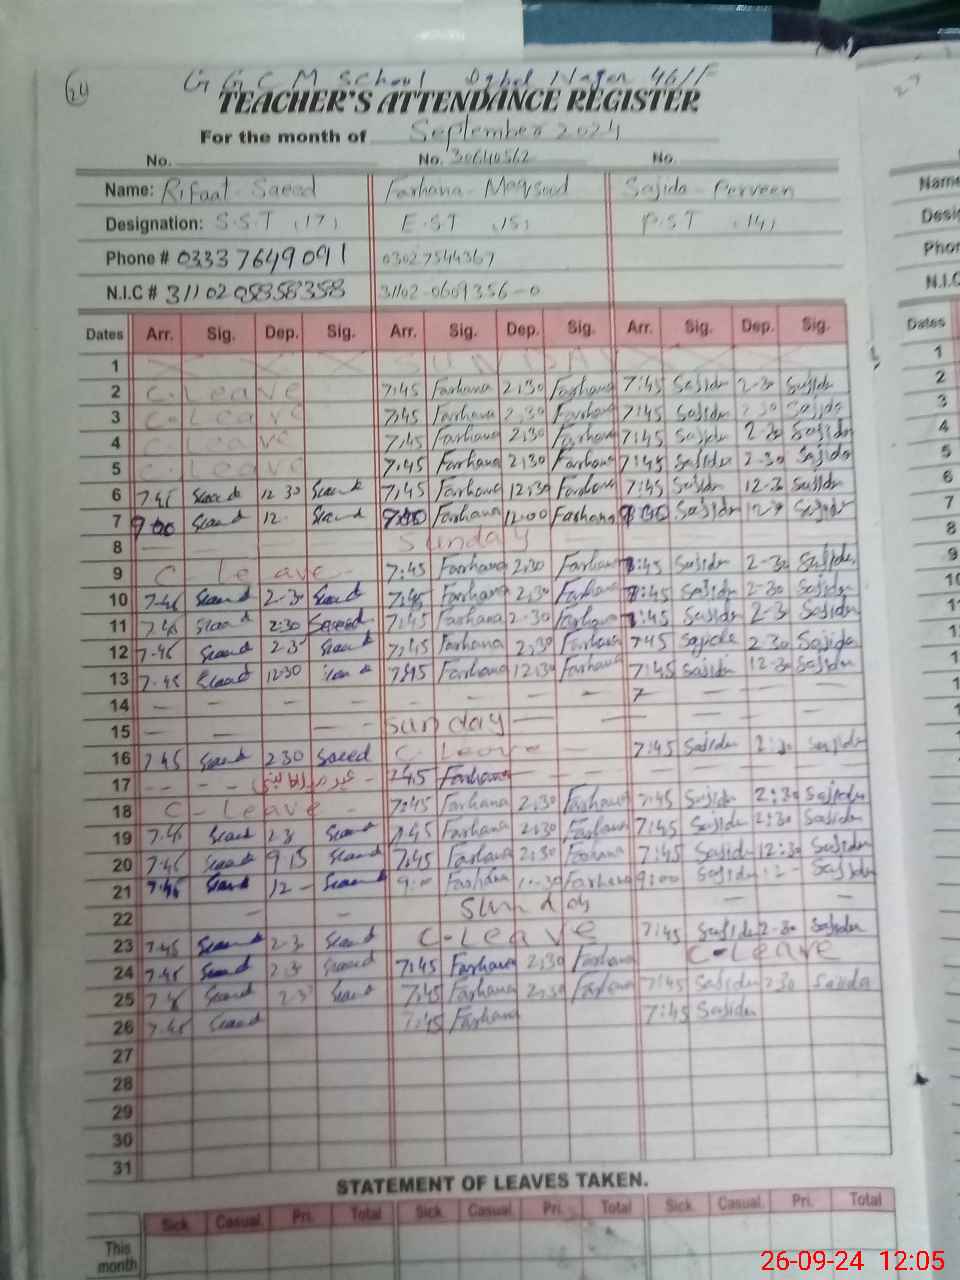 24
G G C M School Iqbal Nagar 461/F
TEACHER'S ATTENDANCE REGISTER
For the month of September 2024
No. No. 30640562 No.
Name: Rifaat Saeed Farhana Maqsood Sajida Perveen
Designation: S.S.T (17) E.S.T (15) P.S.T (14)
Phone # 0333 7649091 03027544367
N.I.C # 31102 0585835 8 31102-0609356-0
Dates Arr. Sig. Dep. Sig. Arr. Sig. Dep. Sig. Arr. Sig. Dep. Sig.
1 SUNDAY
2 C-Leave 7:45 Farhana 2:30 Farhana 7:45 Sajida 2-30 Sajida
3 C-Leave 7:45 Farhana 2:30 Farhana 7:45 Sajida 2 30 Sajida
4 C-Leave 7:45 Farhana 2:30 Farhana 7:45 Sajida 2-30 Sajida
5 C-Leave 7:45 Farhana 2:30 Farhana 7:45 Sajida 2-30 Sajida
6 7.45 Saeed 12 30 Saeed 7:45 Farhana 12:30 Farhana 7:45 Sajida 12-30 Sajida
7 9 00 Saeed 12. Saeed 9:00 Farhana 12:00 Farhana 9:00 Sajida 12 Sajida
8 Sunday
9 C-Leave 7:45 Farhana 2:30 Farhana 7:45 Sajida 2-30 Sajida
10 7-45 Saeed 2-30 Saeed 7:45 Farhana 2:30 Farhana 7:45 Sajida 2-30 Sajida
11 7.45 Saeed 2:30 Saeed 7:45 Farhana 2-30 Farhana 7:45 Sajida 2-30 Sajida
12 7-45 Saeed 2-30 Saeed 7:45 Farhana 2:30 Farhana 7:45 Sajida 2 30 Sajida
13 7-45 Saeed 12-30 Saeed 7:45 Farhana 12:30 Farhana 7:45 Sajida 12-30 Sajida
14 7
15 Sunday
16 7 45 Saeed 2 30 Saeed C-Leave 7:45 Sajida 2:30 Sajida
17 7:45 Farhana
18 C-Leave 7:45 Farhana 2:30 Farhana 7:45 Sajida 2:30 Sajida
19 7.45 Saeed 2 3 Saeed 7:45 Farhana 2:30 Farhana 7:45 Sajida 2:30 Sajida
20 7.45 Saeed 9 15 Saeed 7:45 Farhana 2:30 Farhana 7:45 Sajida 12:30 Sajida
21 7.45 Saeed 12 - Saeed 9:00 Farhana Farhana 9:00 Sajida 12 - Sajida
22 Sunday
23 7.45 Saeed 2-3 Saeed C-Leave 7:45 Sajida 2-30 Sajida
24 7.45 Saeed 2 3 Saeed 7:45 Farhana 2:30 Farhana C-Leave
25 7.45 Saeed 2-3 Saeed 7:45 Farhana 2:30 Farhana 7:45 Sajida 2 30 Sajida
26 7.45 Saeed 7:45 Farhana 7:45 Sajida
27
28
29
30
31
STATEMENT OF LEAVES TAKEN.
Sick Casual Pri. Total Sick Casual Pri. Total Sick Casual Pri. Total
This month
26-09-24 12:05